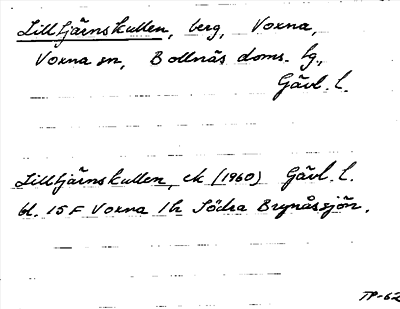 Lilltjärnskullen, berg, Voxna,
Voxna sn, Bollnäs doms. hg.,
Gävl. l.
Lilltjärnskullen, ek (1960) Gävl. l.
bl. 15 F Voxna 1h Södra Brynåssjön.
TP-62